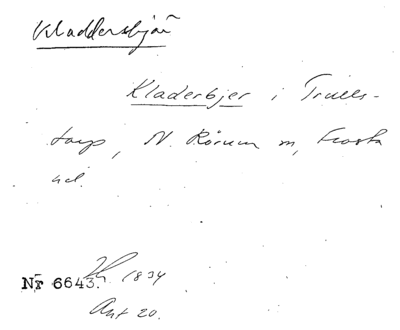 Kladdersbjär
Kladerbjer i Trulls-
torp, N. Rörum sn, Frosta
hd.
Nr 6643. 1834
Ant 20.